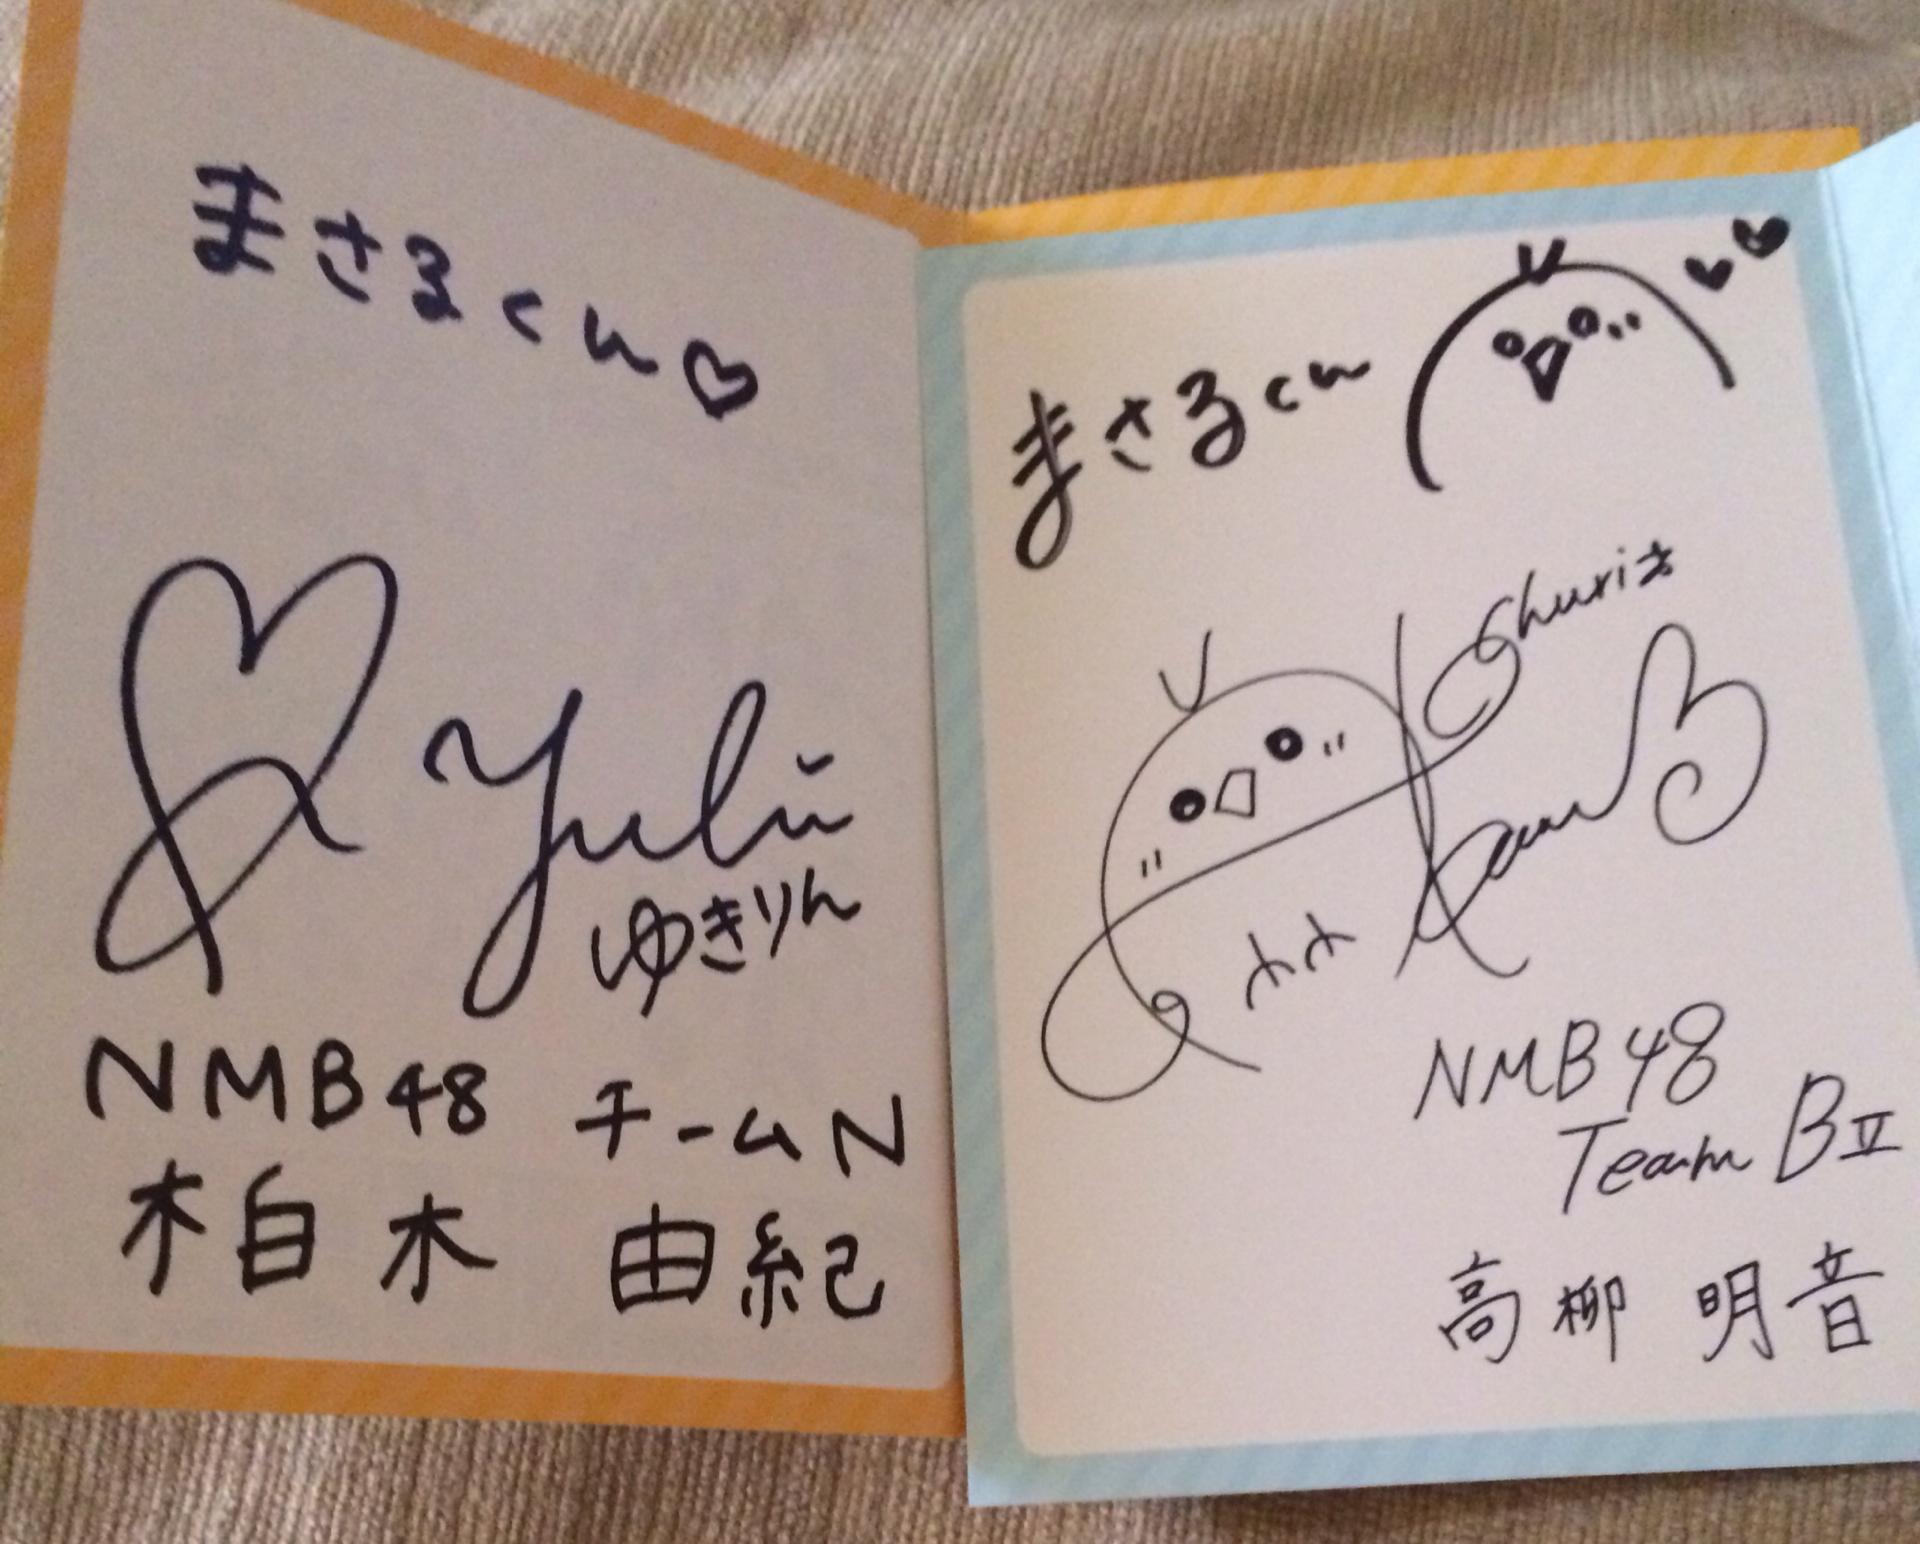 まさるくん♡
Yuki
ゆきりん
NMB48 チームN
柏木 由紀
まさるくん
Churi
NMB48
Team BII
高柳 明音